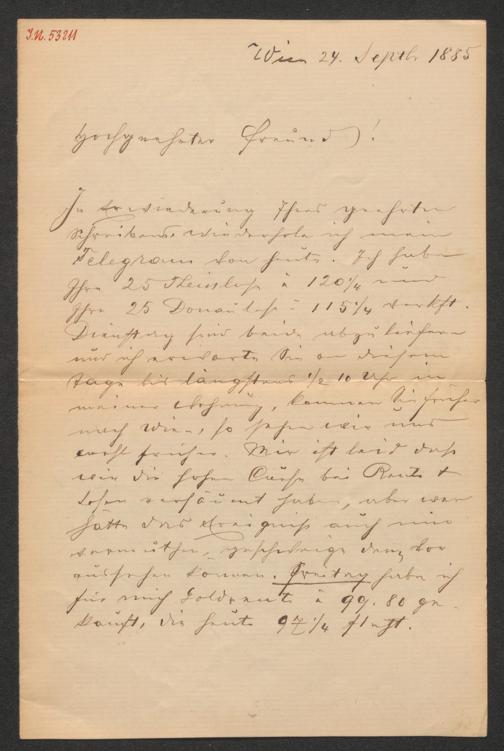 J.N. 53211
Wien 24. Septbr 1885
Hochgeehrter Freund!
In Erwiederung Ihres geehrten
Schreibens, wiederhole ich mein
Telegram von heute. Ich habe
Ihre 25 Theisslose à 120 1/4 und
Ihre 25 Donaulose à 115 1/4 verkft.
Dienstag sind beide abzuliefern
und ich erwarte Sie an diesem
Tage bis längstens 1/2 10 Uhr in
meiner Wohnung, kommen Sie früher
nach Wien, so sehen wir uns
wohl früher. Mir ist leid dass
wir die hohen Course bei Rente &
Losen versäumt haben, aber wer
hätte das Ereigniss auch nur
vermuthen, geschweige denn vor
aussehen können. Freitag habe ich
für mich Goldrente à 99.80 ge-
kauft, die heute 97 1/4 steht.